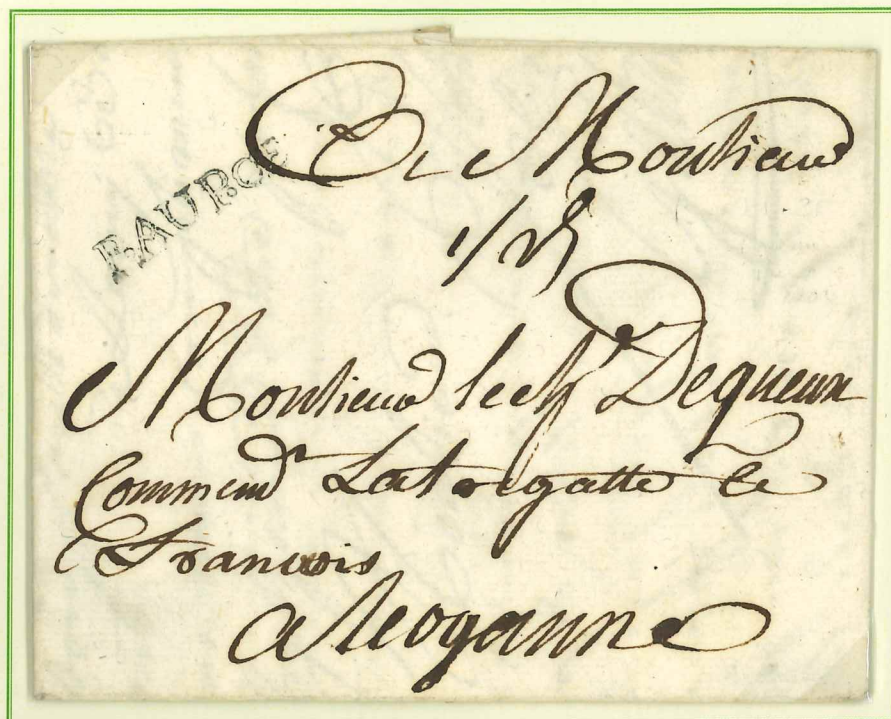 F.AUROE
A Monsieur
Monsieur le chr Dequeux
Commend Lafregatte Le
François
a leogaunne